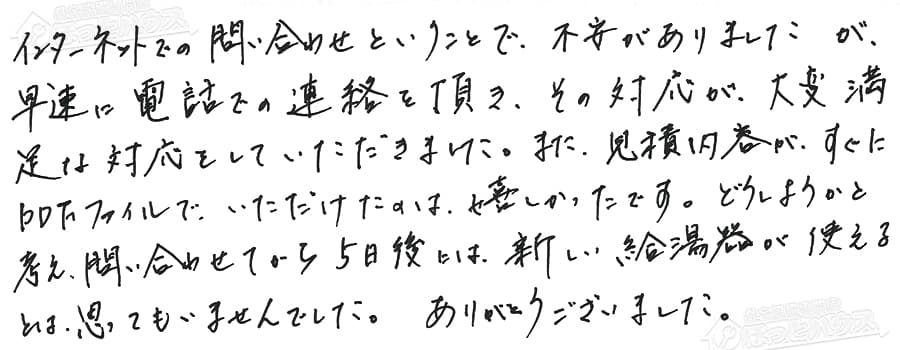 インターネットでの問い合わせということで、不安がありましたが、
早速に電話での連絡を頂き、その対応が、大変満
足な対応をしていただきました。また、見積内容が、すぐに
PDFファイルで、いただけたのは、嬉しかったです。どうしようかと
考え、問い合わせてから5日後には、新しい給湯器が使える
とは、思ってもいませんでした。 ありがとうございました。